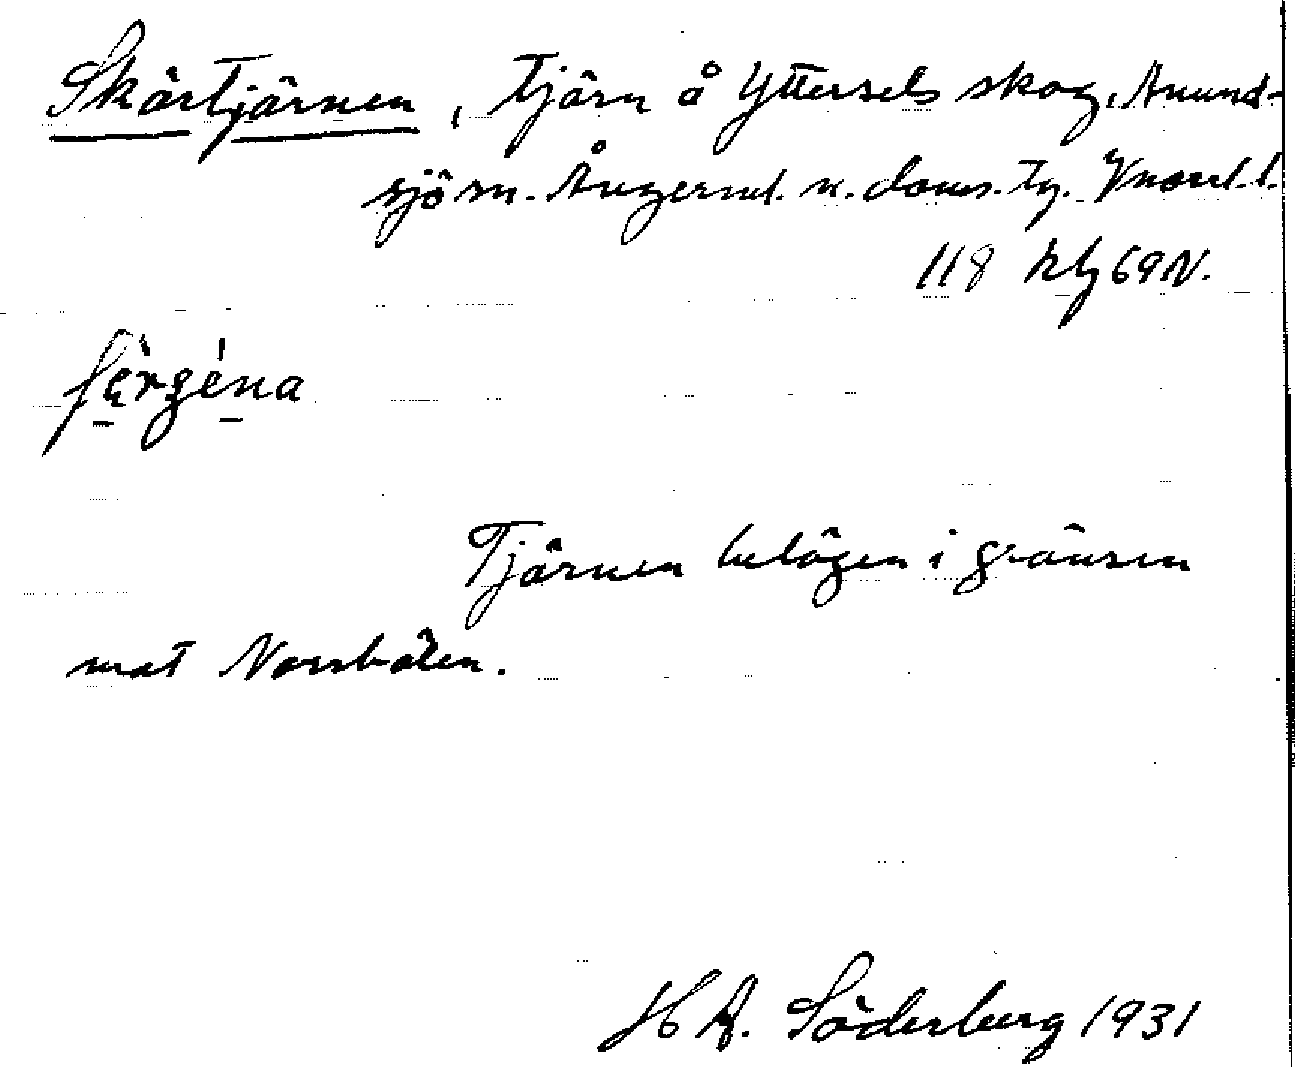 Skärtjärnen, tjärn å Yttersels skog, Anund-
sjö sn. Ångerml. n. doms. tg. Vnorrl. l.
118 69 N.
Tjärnen belägen i gränsen
mot Norrbölen.
H A. Söderberg 1931